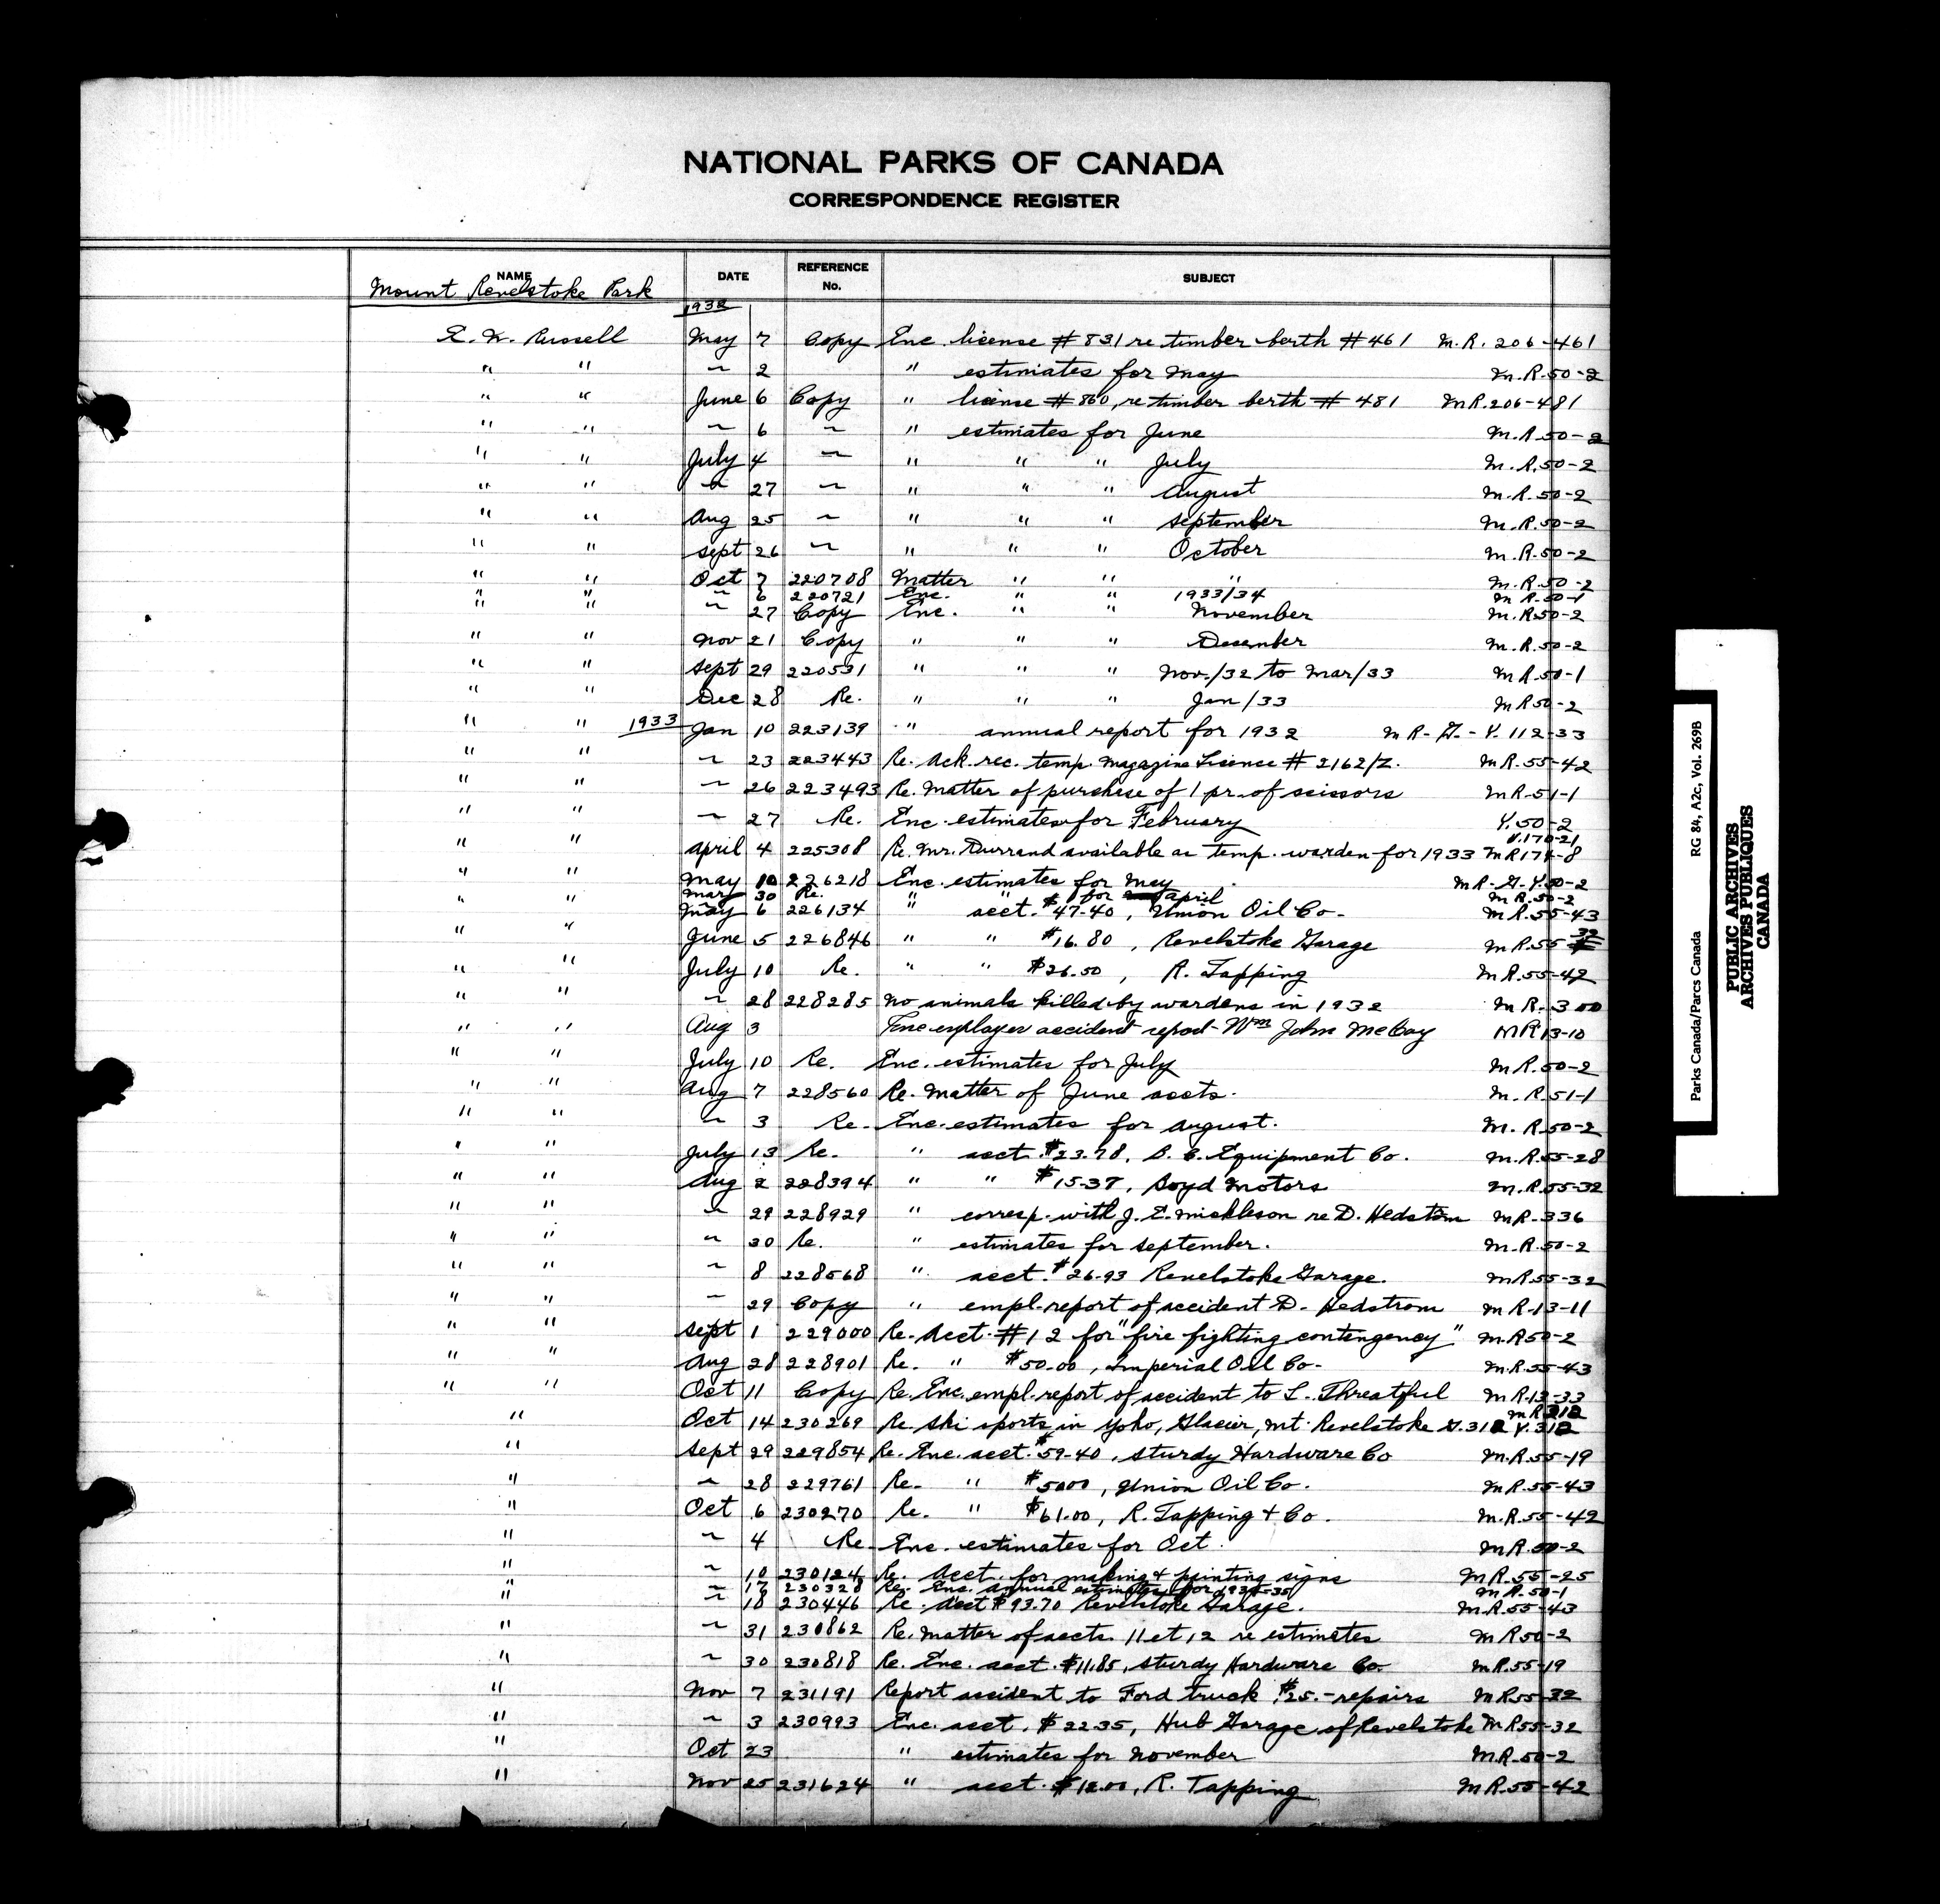 NATIONAL PARKS OF CANADA
CORRESPONDENCE REGISTER
NAME DATE REFERENCE No. SUBJECT
Mount Revelstoke Park
1932
E. W. Russell May 7 Copy Enc. license # 831 re timber berth # 461 M.R. 206-461
" " ~ 2 " estimates for May M.R.50-2
" " June 6 Copy " license # 860, re timber berth # 481 MR.206-481
" " ~ 6 ~ " estimates for June M.R.50-2
" " July 4 ~ " " " July M.R.50-2
" " ~ 27 ~ " " " August M.R.50-2
" " Aug 25 ~ " " " September M.R.50-2
" " Sept 26 ~ " " " October M.R.50-2
" " Oct 7 220708 Matter " " " M.R.50-2
" " ~ 6 220721 Enc. " " 1933/34 M R.50-1
" " ~ 27 Copy Enc. " " November M.R.50-2
" " Nov 21 Copy " " " December M.R.50-2
" " Sept 29 220531 " " " Nov./32 to Mar/33 M R.50-1
" " Dec 28 Re. " " " Jan/33 M R50-2
" " 1933 Jan 10 223139 " annual report for 1932 M R-G.-Y.112-33
" " ~ 23 223443 Re. Ack. rec. temp. Magazine License # 2162/Z. M R.55-42
" " ~ 26 223493 Re. Matter of purchase of 1 pr. of scissors M R-51-1
" " ~ 27 Re. Enc. estimates for February Y.50-2
Y.170-21
" " April 4 225308 Re. Mr. Durrand available as temp. warden for 1933 M R174-8
" " May 10 226218 Enc. estimates for May M R.-G.-Y.50-2
Mar 30 Re. " " for April M R.50-2
" " May 6 226134 " acct. $47.40, Union Oil Co. M R.55-43
" " June 5 226846 " " $16.80, Revelstoke Garage M R.55-32
" " July 10 Re. " " $26.50, R. Tapping M R.55-42
" " ~ 28 228285 No animals killed by wardens in 1932 M R.-300
" " Aug 3 Enc employer accident report - Wm John McCay MR 13-10
" " July 10 Re. Enc. estimates for July M R.50-2
" " Aug 7 228560 Re. Matter of June accts. M.R.51-1
" " ~ 3 Re. Enc. estimates for August. M.R.50-2
" " July 13 Re. " acct. $23.78, B.C. Equipment Co. M.R.55-28
" " Aug 2 228394 " " $15.37, Boyd Motors M.R.55-32
" " ~ 29 228929 " corresp. with J. E. Mickleson re D. Hedstrom M R.-336
" " ~ 30 Re. " estimates for September. M.R.50-2
" " ~ 8 228568 " acct. $26.93 Revelstoke Garage. M R.55-32
" " ~ 29 Copy " empl. report of accident D. Hedstrom M R-13-11
" " Sept 1 229000 Re. Acct. #12 for "fire fighting contingency" M.R50-2
" " Aug 28 228901 Re. " $50.00, Imperial Oil Co. M.R.55-43
" " Oct 11 Copy Re. Enc. empl. report of accident to L. Threatful M R.13-33
M R 312
" Oct 14 230269 Re. Ski sports in Yoho, Glacier, Mt. Revelstoke G.312 Y.312
" Sept 29 229854 Re. Enc. acct. $59.40, Sturdy Hardware Co M.R.55-19
" ~ 28 229761 Re. " $5000, Union Oil Co. M.R.55-43
" Oct 6 230270 Re. " $61.00, R. Tapping & Co. M.R.55-42
" ~ 4 Re. Enc. estimates for Oct. M R.50-2
" ~ 10 230124 Re. Acct. for making & painting signs M R.55-25
" ~ 17 230328 Re. Enc. annual estimates for 1934-35 M R.50-1
" ~ 18 230446 Re. Acct $93.70 Revelstoke Garage. M.R.55-43
" ~ 31 230862 Re. Matter of accts. 11 et 12 re estimates M R50-2
" ~ 30 230818 Re. Enc. acct. $11.85, Sturdy Hardware Co. M R.55-19
" Nov 7 231191 Report accident to Ford truck $25.- repairs M R55-32
" ~ 3 230993 Enc. acct. $22.35, Hub Garage of Revelstoke M R55-32
" Oct 23 " estimates for November M R.50-2
" Nov 25 231624 " acct. $12.00, R. Tapping M R.55-42
Parks Canada/Parcs Canada RG 84, A2c, Vol. 269B
PUBLIC ARCHIVES
ARCHIVES PUBLIQUES
CANADA